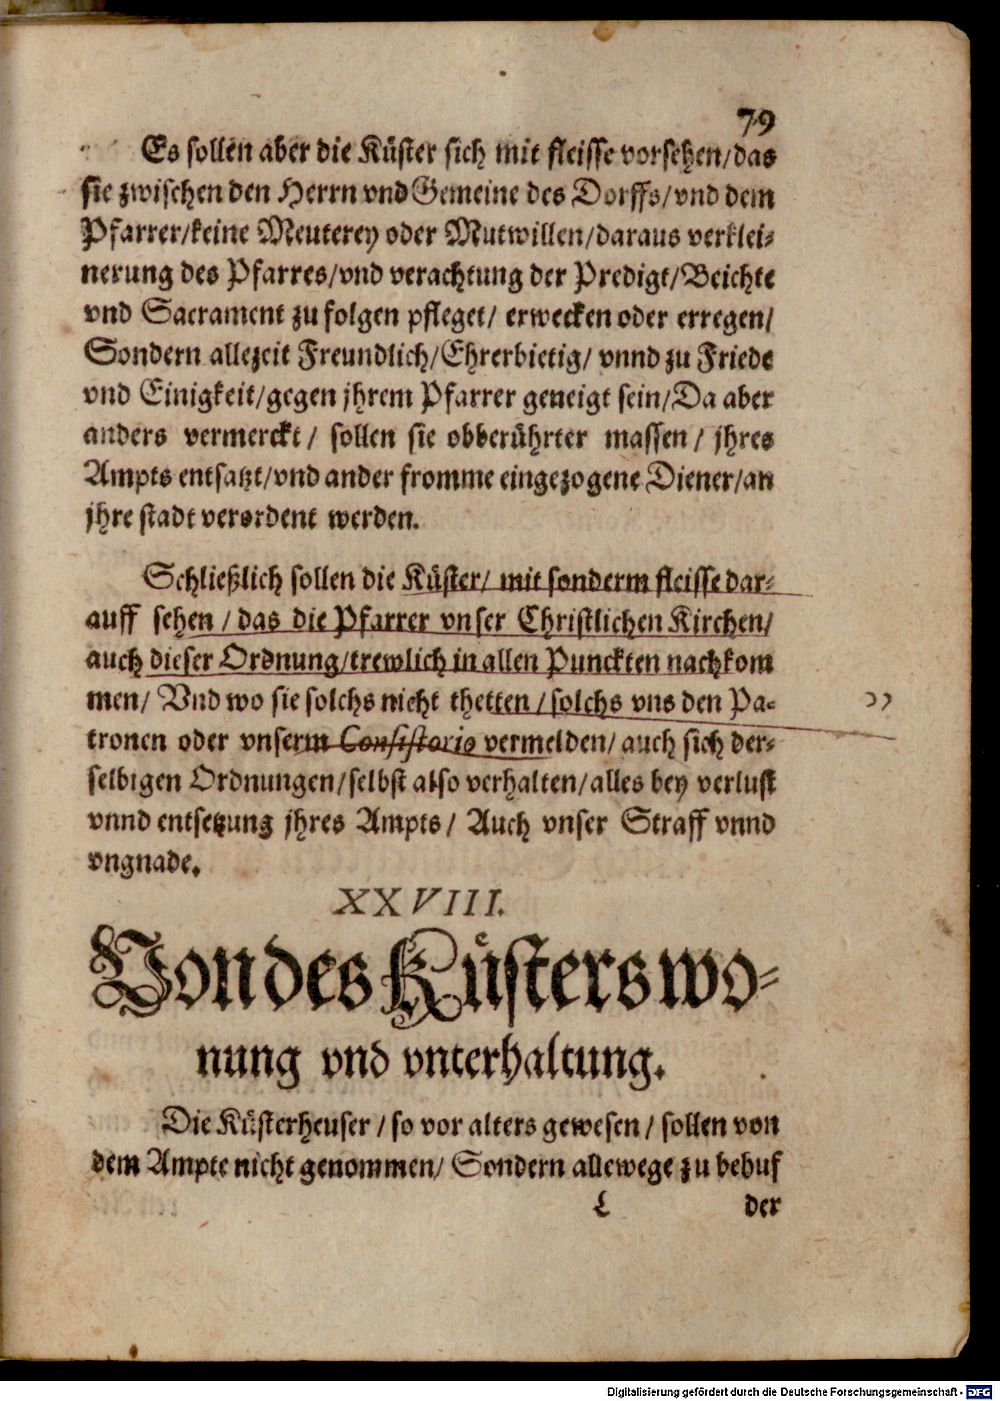 79
Es sollen aber die Küster sich mit fleisse vorsehen/das
sie zwischen den Herrn vnd Gemeine des Dorffs/vnd dem
Pfarrer/keine Meuterey oder Mutwillen/daraus verklei-
nerung des Pfarres/vnd verachtung der Predigt/Beichte
vnd Sacrament zu folgen pfleget/ erwecken oder erregen/
Sondern allezeit Freundlich/Ehrerbietig/ vnnd zu Friede
vnd Einigkeit/gegen jhrem Pfarrer geneigt sein/Da aber
anders vermerckt/ sollen sie obberührter massen/ jhres
Ampts entsatzt/vnd ander fromme eingezogene Diener/an
jhre stadt verordent werden.
Schließlich sollen die Küster/ mit sonderm fleisse dar-
auff sehen/das die Pfarrer vnser Christlichen Kirchen/
auch dieser Ordnung/trewlich in allen Punckten nachkom
men/ Vnd wo sie solchs nicht thetten/solchs vns den Pa-
tronen oder vnserm Consistorio vermelden/auch sich der-
selbigen Ordnungen/selbst also verhalten/alles bey verlust
vnnd entsetzung jhres Ampts/ Auch vnser Straff vnnd
vngnade.
XXVIII.
Von des Küsters wo-
nung vnd vnterhaltung.
Die Küsterheuser/so vor alters gewesen/sollen von
dem Ampte nicht genommen/ Sondern allewege zu behuf
L der
Digitalisierung gefördert durch die Deutsche Forschungsgemeinschaft - DFG